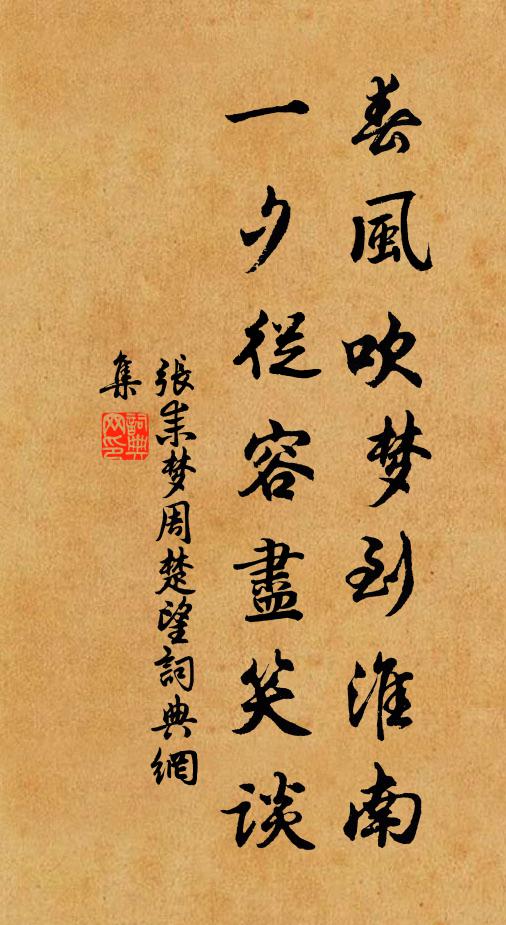 春風吹梦到淮南
一夕從容盡笑談
張耒梦周楚望詞典網
集
詞典网印